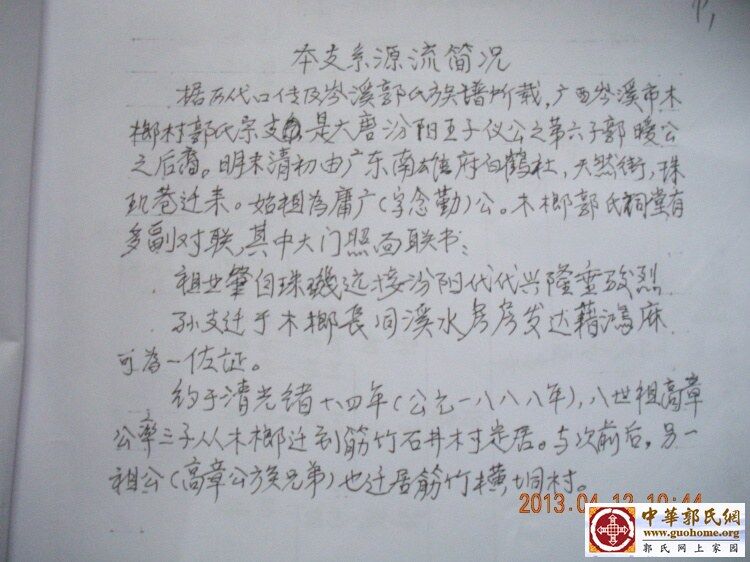 本支系源流简况
据历代口传及岑溪郭氏族谱所载,广西岑溪市木
榔村郭氏宗支是大唐汾阳王子仪公之第六子郭暧公
之后裔。明末清初由广东南雄府白鹤社,天然街,珠
玑巷迁来。始祖为庸广(字念勤)公。木榔郭氏祠堂有
多副对联,其中大门照面联书:
祖世肇自珠玑远接汾阳代代兴隆垂骏烈
孙支迁于木榔長同溪水房房发达藉鴻庥
可为一佐证。
约于清光绪十四年(公元一八八八年),八世祖高章
公率三子从木榔迁到筋竹石井村定居。与次前后,另一
祖公(高章公族兄弟)也迁居筋竹横垌村。
2013.04.13 10:44
中華郭氏網
www.guohome.org
郭氏网上家园